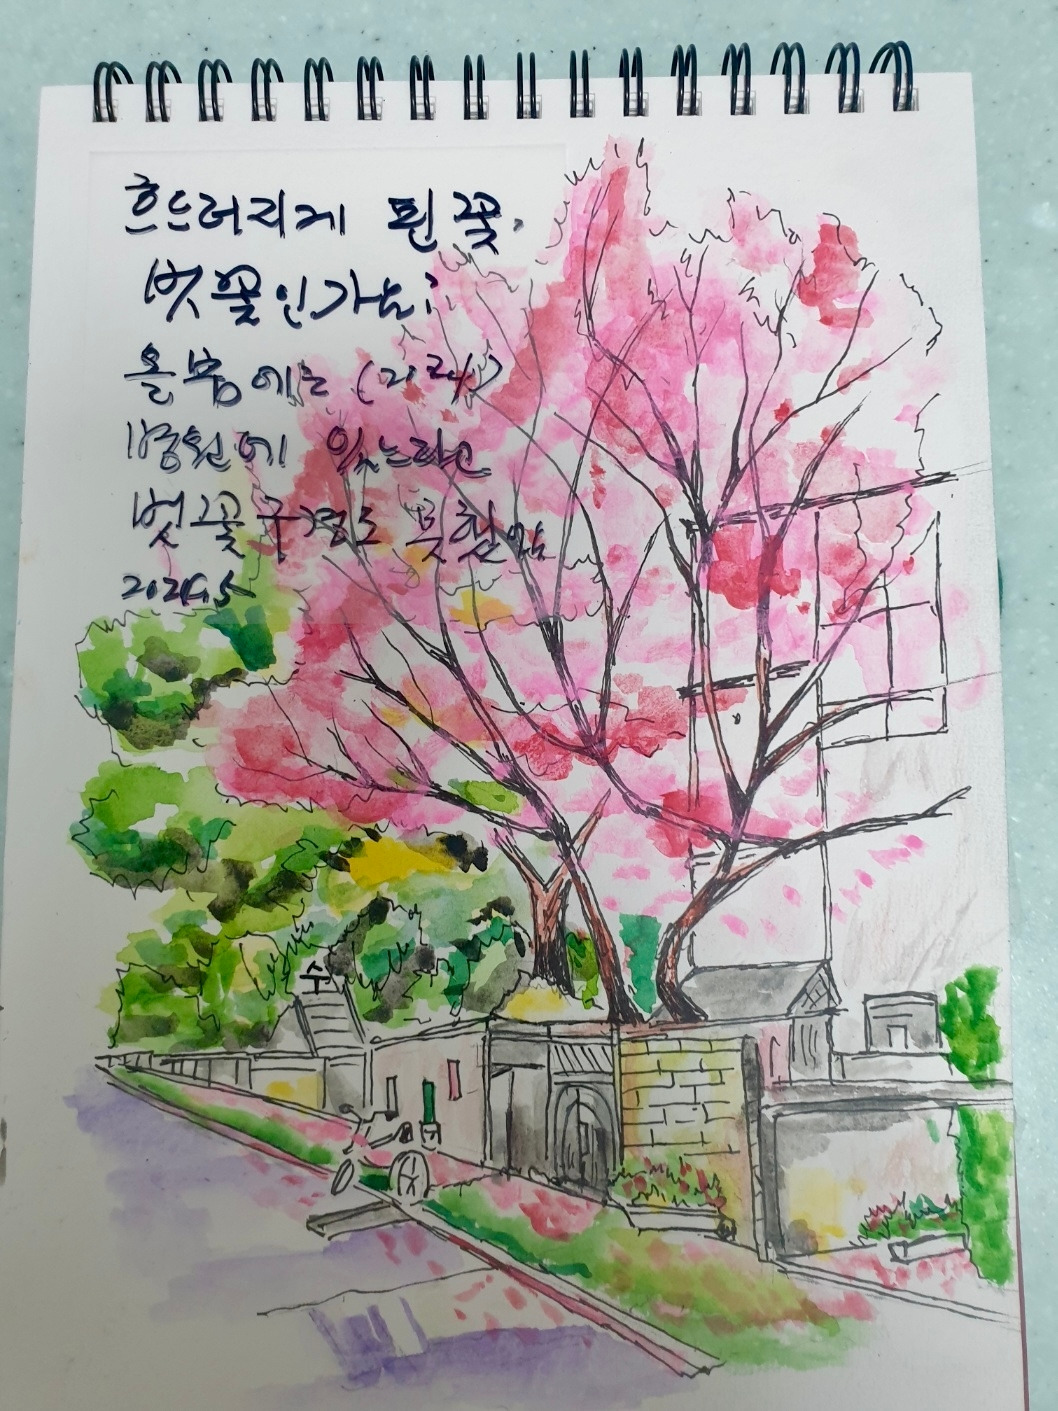 흐드러지게 핀 꽃,
벚꽃인가요?
올봄에는 (2024)
병원에 있느라고
벚꽃구경도 못했음
2024.5
수